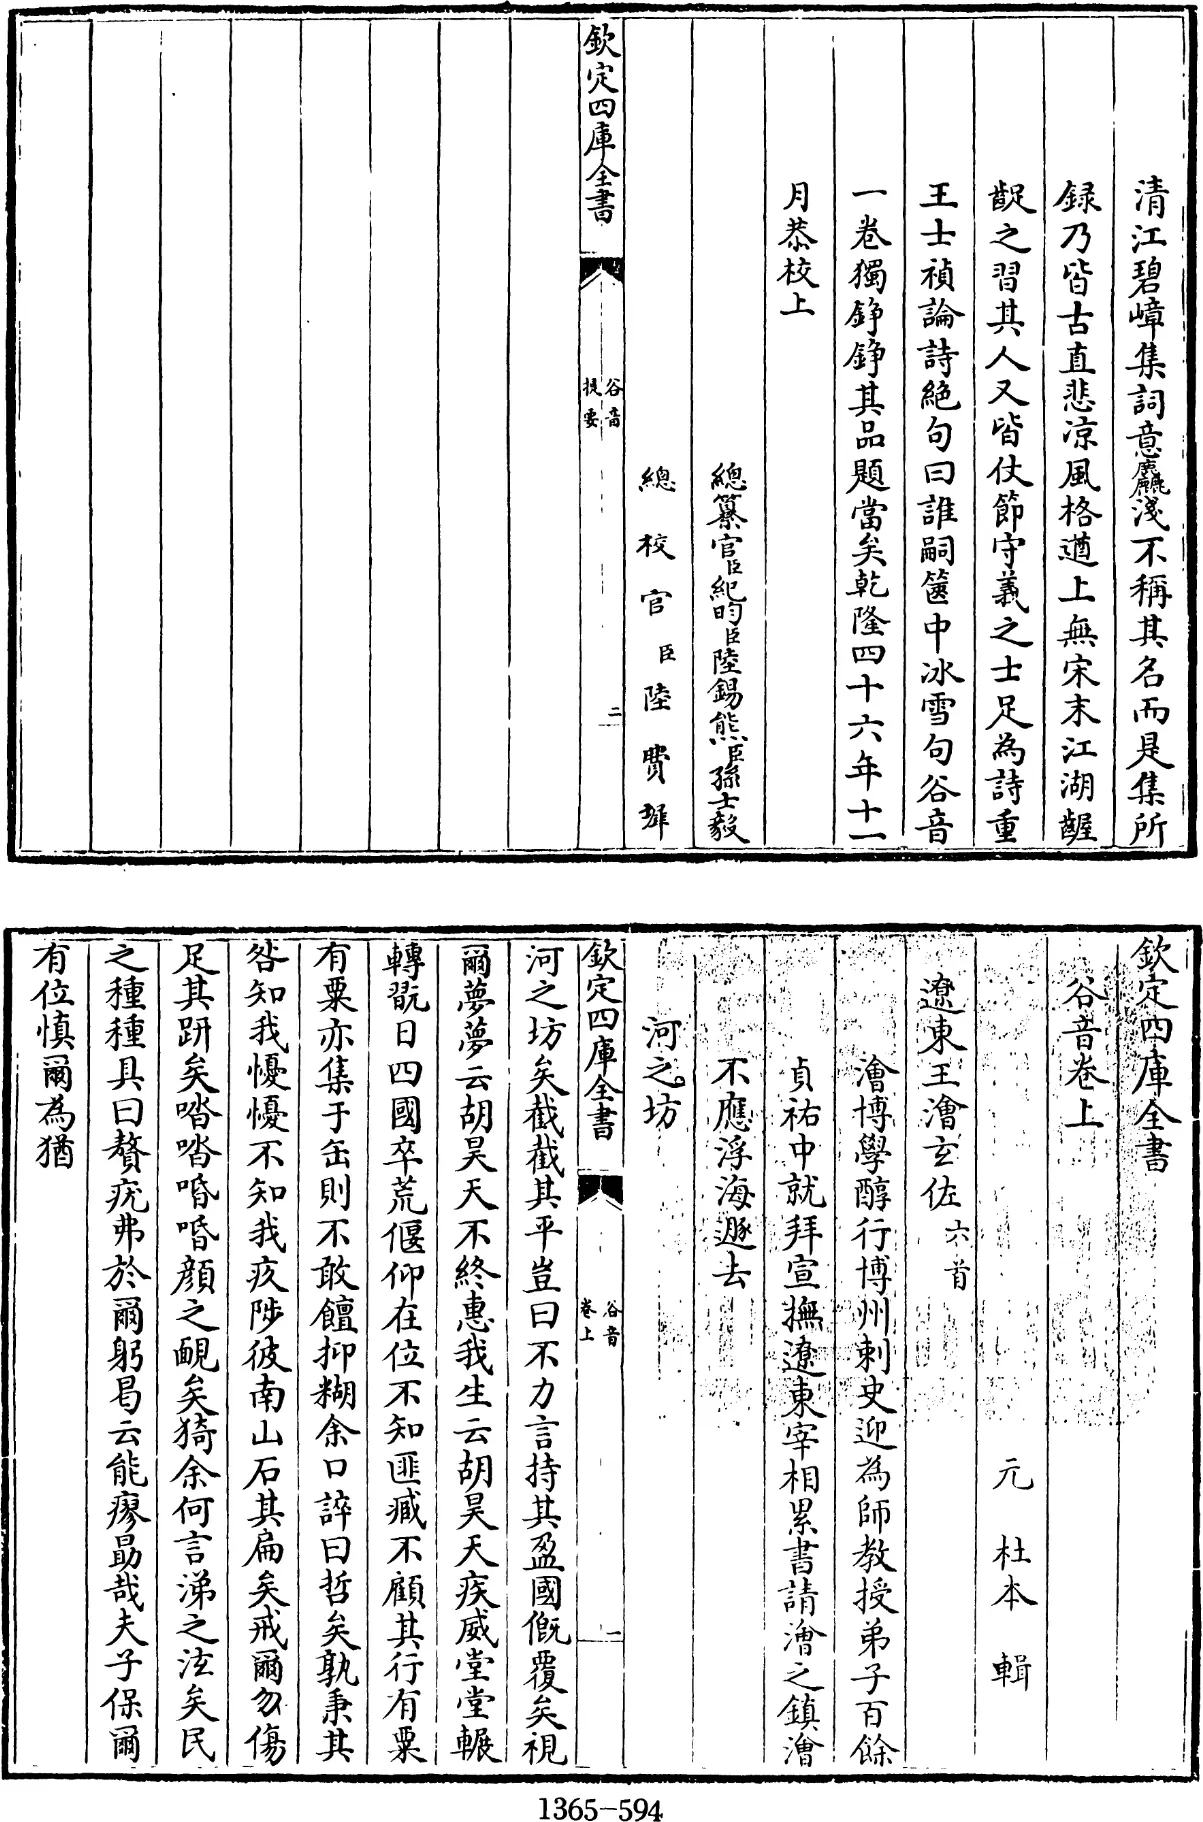 清江碧嶂集詞意麤淺不稱其名而是集所
録乃皆古直悲凉風格遒上無宋末江湖齷
齪之習其人又皆仗節守義之士足為詩重
王士禎論詩絶句曰誰嗣篋中冰雪句谷音
一卷獨錚錚其品題當矣乾隆四十六年十一
月恭校上
總纂官臣紀昀臣陸錫熊臣孫士毅
總校官臣陸費墀
欽定四庫全書
谷音
提要
二
欽定四庫全書
谷音卷上
元 杜本 輯
遼東王澮玄佐六首
澮博學醇行博州刺史迎為師教授弟子百餘
貞祐中就拜宣撫遼東宰相累書請澮之鎮澮
不應浮海遯去
河之坊
欽定四庫全書
谷音
卷上
一
河之坊矣截截其平豈曰不力言持其盈國慨覆矣視
爾夢夢云胡昊天不終惠我生云胡昊天疾威堂堂輾
轉翫日四國卒荒偃仰在位不知匪臧不顧其行有粟
有粟亦集于缶則不敢饘抑糊余口誶曰哲矣孰秉其
咎知我憂憂不知我疚陟彼南山石其扁矣戒爾勿傷
足其趼矣喈喈唔唔顔之靦矣猗余何言涕之泫矣民
之種種具曰贅疣弗於爾躬曷云能瘳勗哉夫子保爾
有位慎爾為猶
1365-594